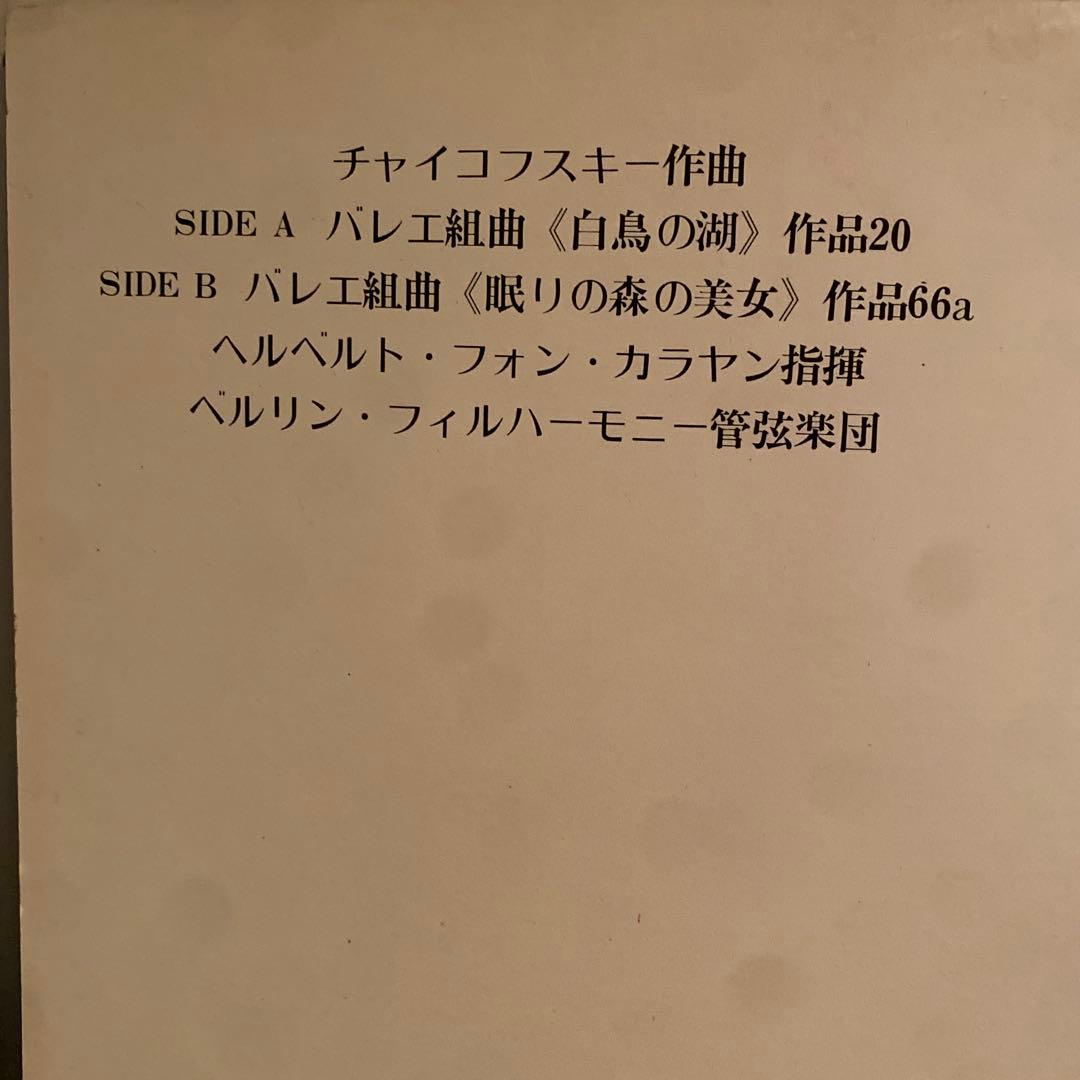 チャイコフスキー作曲
SIDE A バレエ組曲《白鳥の湖》作品20
SIDE B バレエ組曲《眠りの森の美女》作品66a
ヘルベルト・フォン・カラヤン指揮
ベルリン・フィルハーモニー管弦楽団